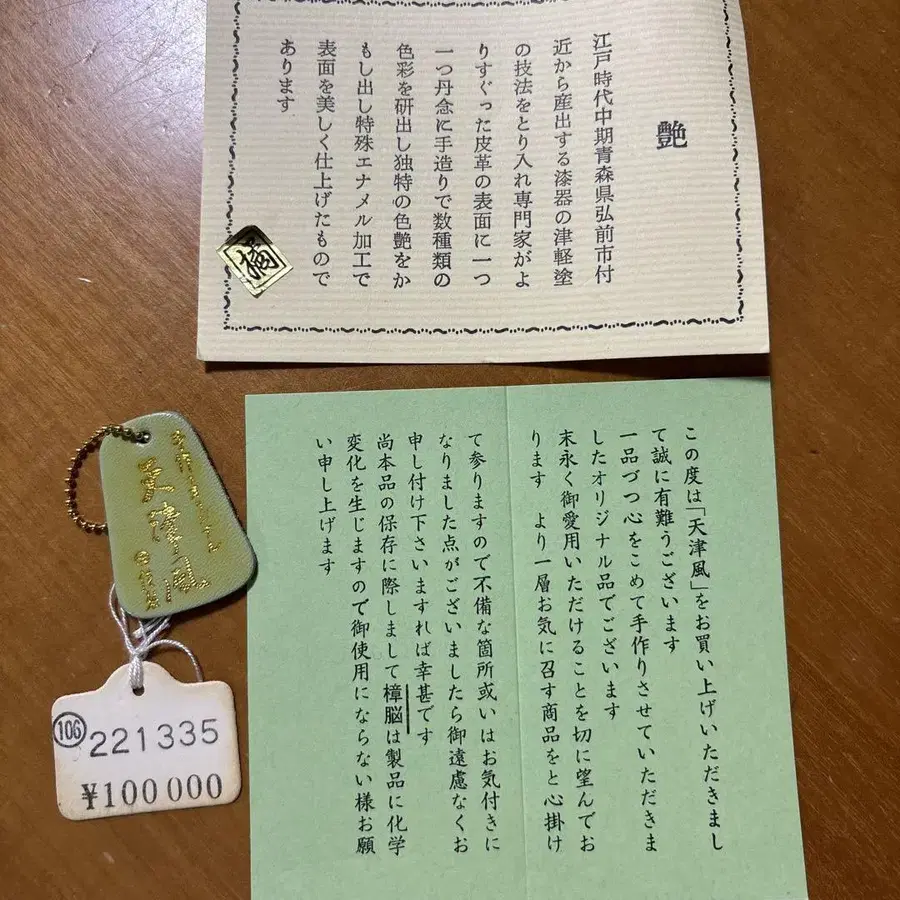 艶
江戸時代中期青森県弘前市付
近から産出する漆器の津軽塗
の技法をとり入れ専門家がよ
りすぐった皮革の表面に一つ
一つ丹念に手造りで数種類の
色彩を研出し独特の色艶をか
もし出し特殊エナメル加工で
表面を美しく仕上げたもので
あります
この度は「天津風」をお買い上げいただきまし
て誠に有難うございます
一品づつ心をこめて手作りさせていただきま
したオリジナル品でございます
末永く御愛用いただけることを切に望んでお
ります　より一層お気に召す商品をと心掛け
て参りますので不備な箇所或いはお気付きに
なりました点がございましたら御遠慮なくお
申し付け下さいますれば幸甚です
尚本品の保存に際しまして樟脳は製品に化学
変化を生じますので御使用にならない様お願
い申し上げます
天津風
106
221335
¥100000